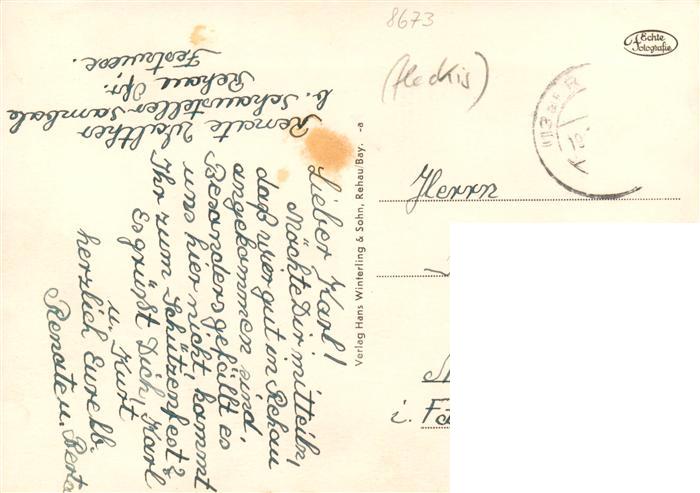 Lieber Karl!
Möchte Dir mitteiln,
daß wir gut in Rehau
angekommen sind.
Besonders gefällt es
uns hier nicht, kommt
Ihr zum Schützenfest?
Es grüßt Dich, Karl
u. Kurt
herzlich Eure lb.
Renate u. Berta
Renate Walther
b. Schausteller Sambale
Rehau Ofr.
Festwiese.
Verlag Hans Winterling & Sohn, Rehau/Bay. -a
8673
(fleckig)
Echte
Fotografie
Herrn
i.